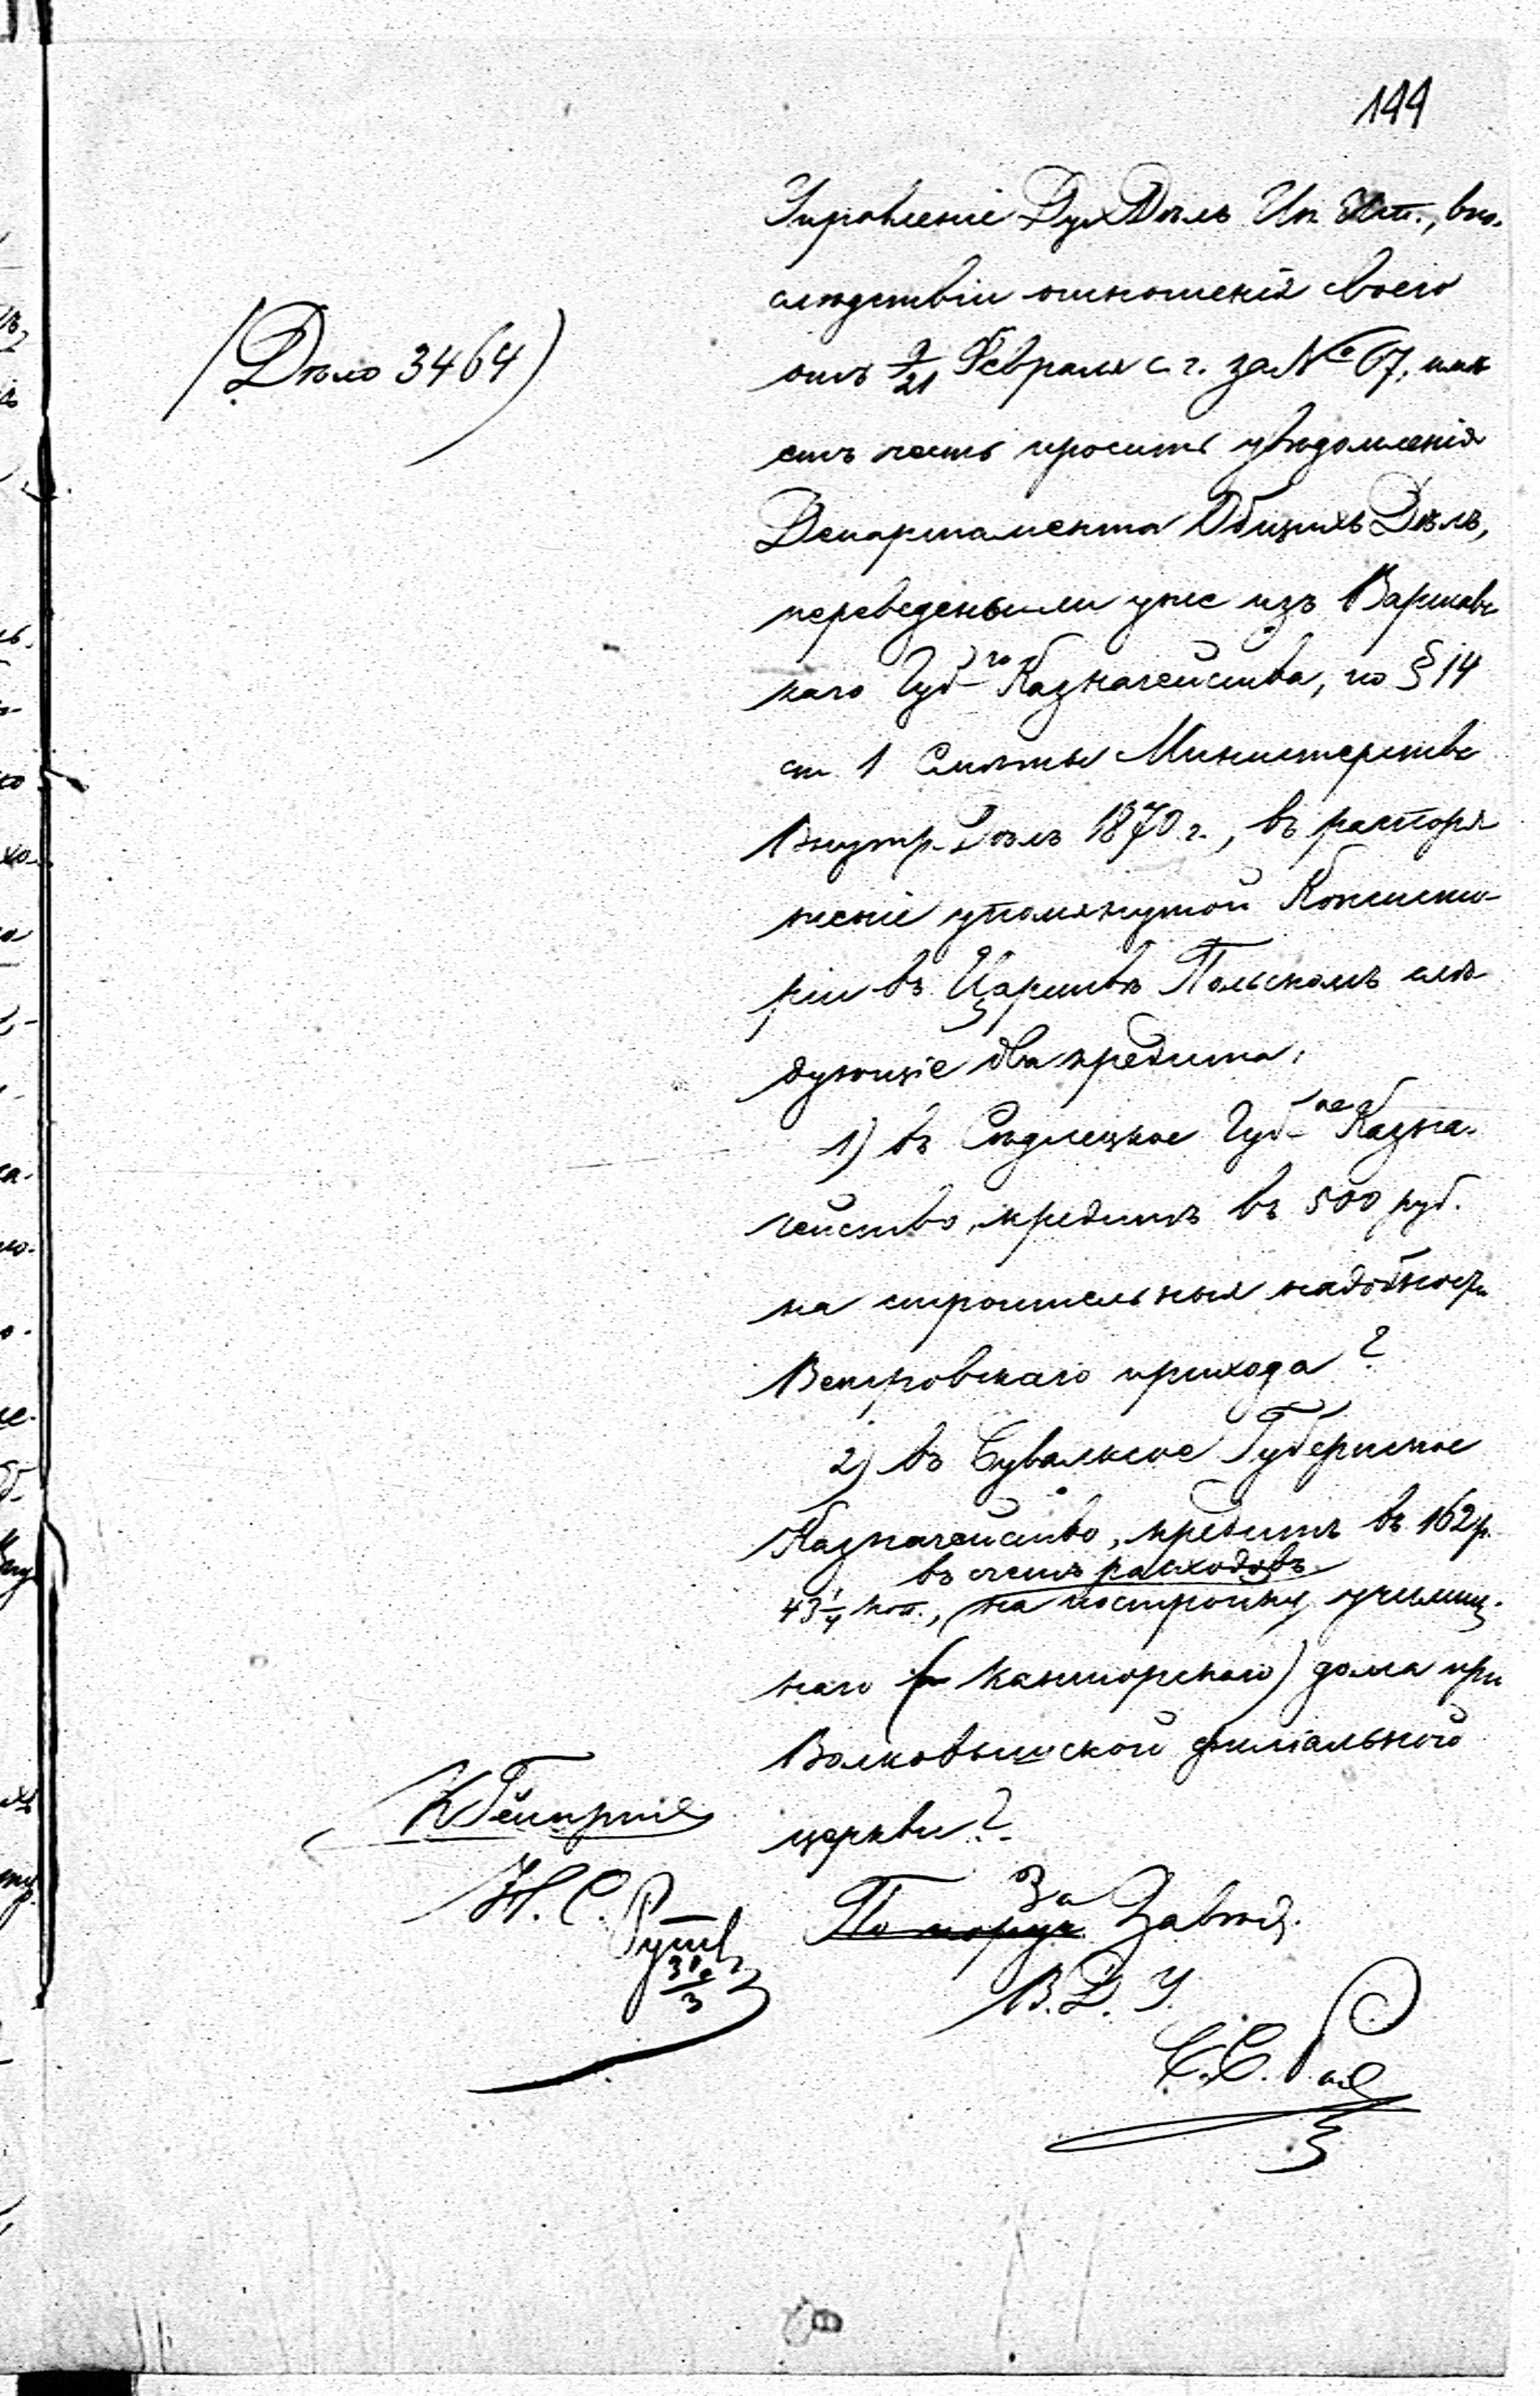 144
Управленіе Дух Дѣлъ Ин. Исп., впо-
слѣдствіи отношенія своего
(Дѣло 3464)
отъ 9/21 Февраля с. г. за № 67, имѣ
етъ честь просить увѣдомленія
Департамента Общихъ Дѣлъ,
переведены ли уже изъ Варшавс
каго Губ-го Казначейства, по § 14
ст 1 Смѣты Министерства
Внутр. Дѣлъ 1870 г., въ распоря
женіе упомянутой Консисто-
ріи въ Царствѣ Польскомъ слѣ
дующіе два кредита:
1) въ Сѣдлецкое Губ-ое Казна-
чейство, кредитъ въ 500 руб.
на строительныя надобности
Венгровскаго прихода?
2) въ Сувалкское Губернское
Казначейство, кредитъ въ 162 р.
въ счетъ расходовъ
43 1/4 коп., на постройку училищ-
наго (и канторскаго) дома при
Волковышской филіальной
церкви?
Н. С.
За
По поруч. Завѣд.
В. Д. У.
С. С.